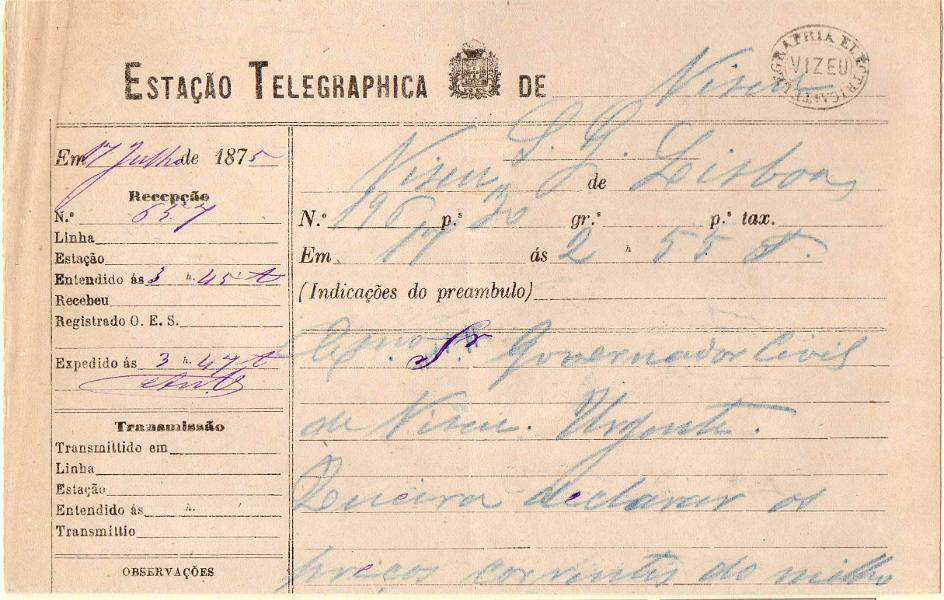 ESTAÇÃO TELEGRAPHICA DE Viseu
TELEGRAPHIA ELECTRICA
VIZEU
Em 17 Julho de 1875
Recepção
N.º 657
Linha
Estação
Entendido ás 3 h. 45 t
Recebeu
Registrado O. E. S.
Expedido ás 3 h. 47 t
Transmissão
Transmittido em
Linha
Estação
Entendido ás h.
Transmittio
OBSERVAÇÕES
S. G.
Viseu de Lisboa
N.º 196 p.ª 30 gr.ª p.ª tax.
Em 17 ás 2 h 55 t.
(Indicações do preambulo)
Exmo Sr Governador Civil
de Viseu. Urgente.
Queira declarar os
preços correntes do milho